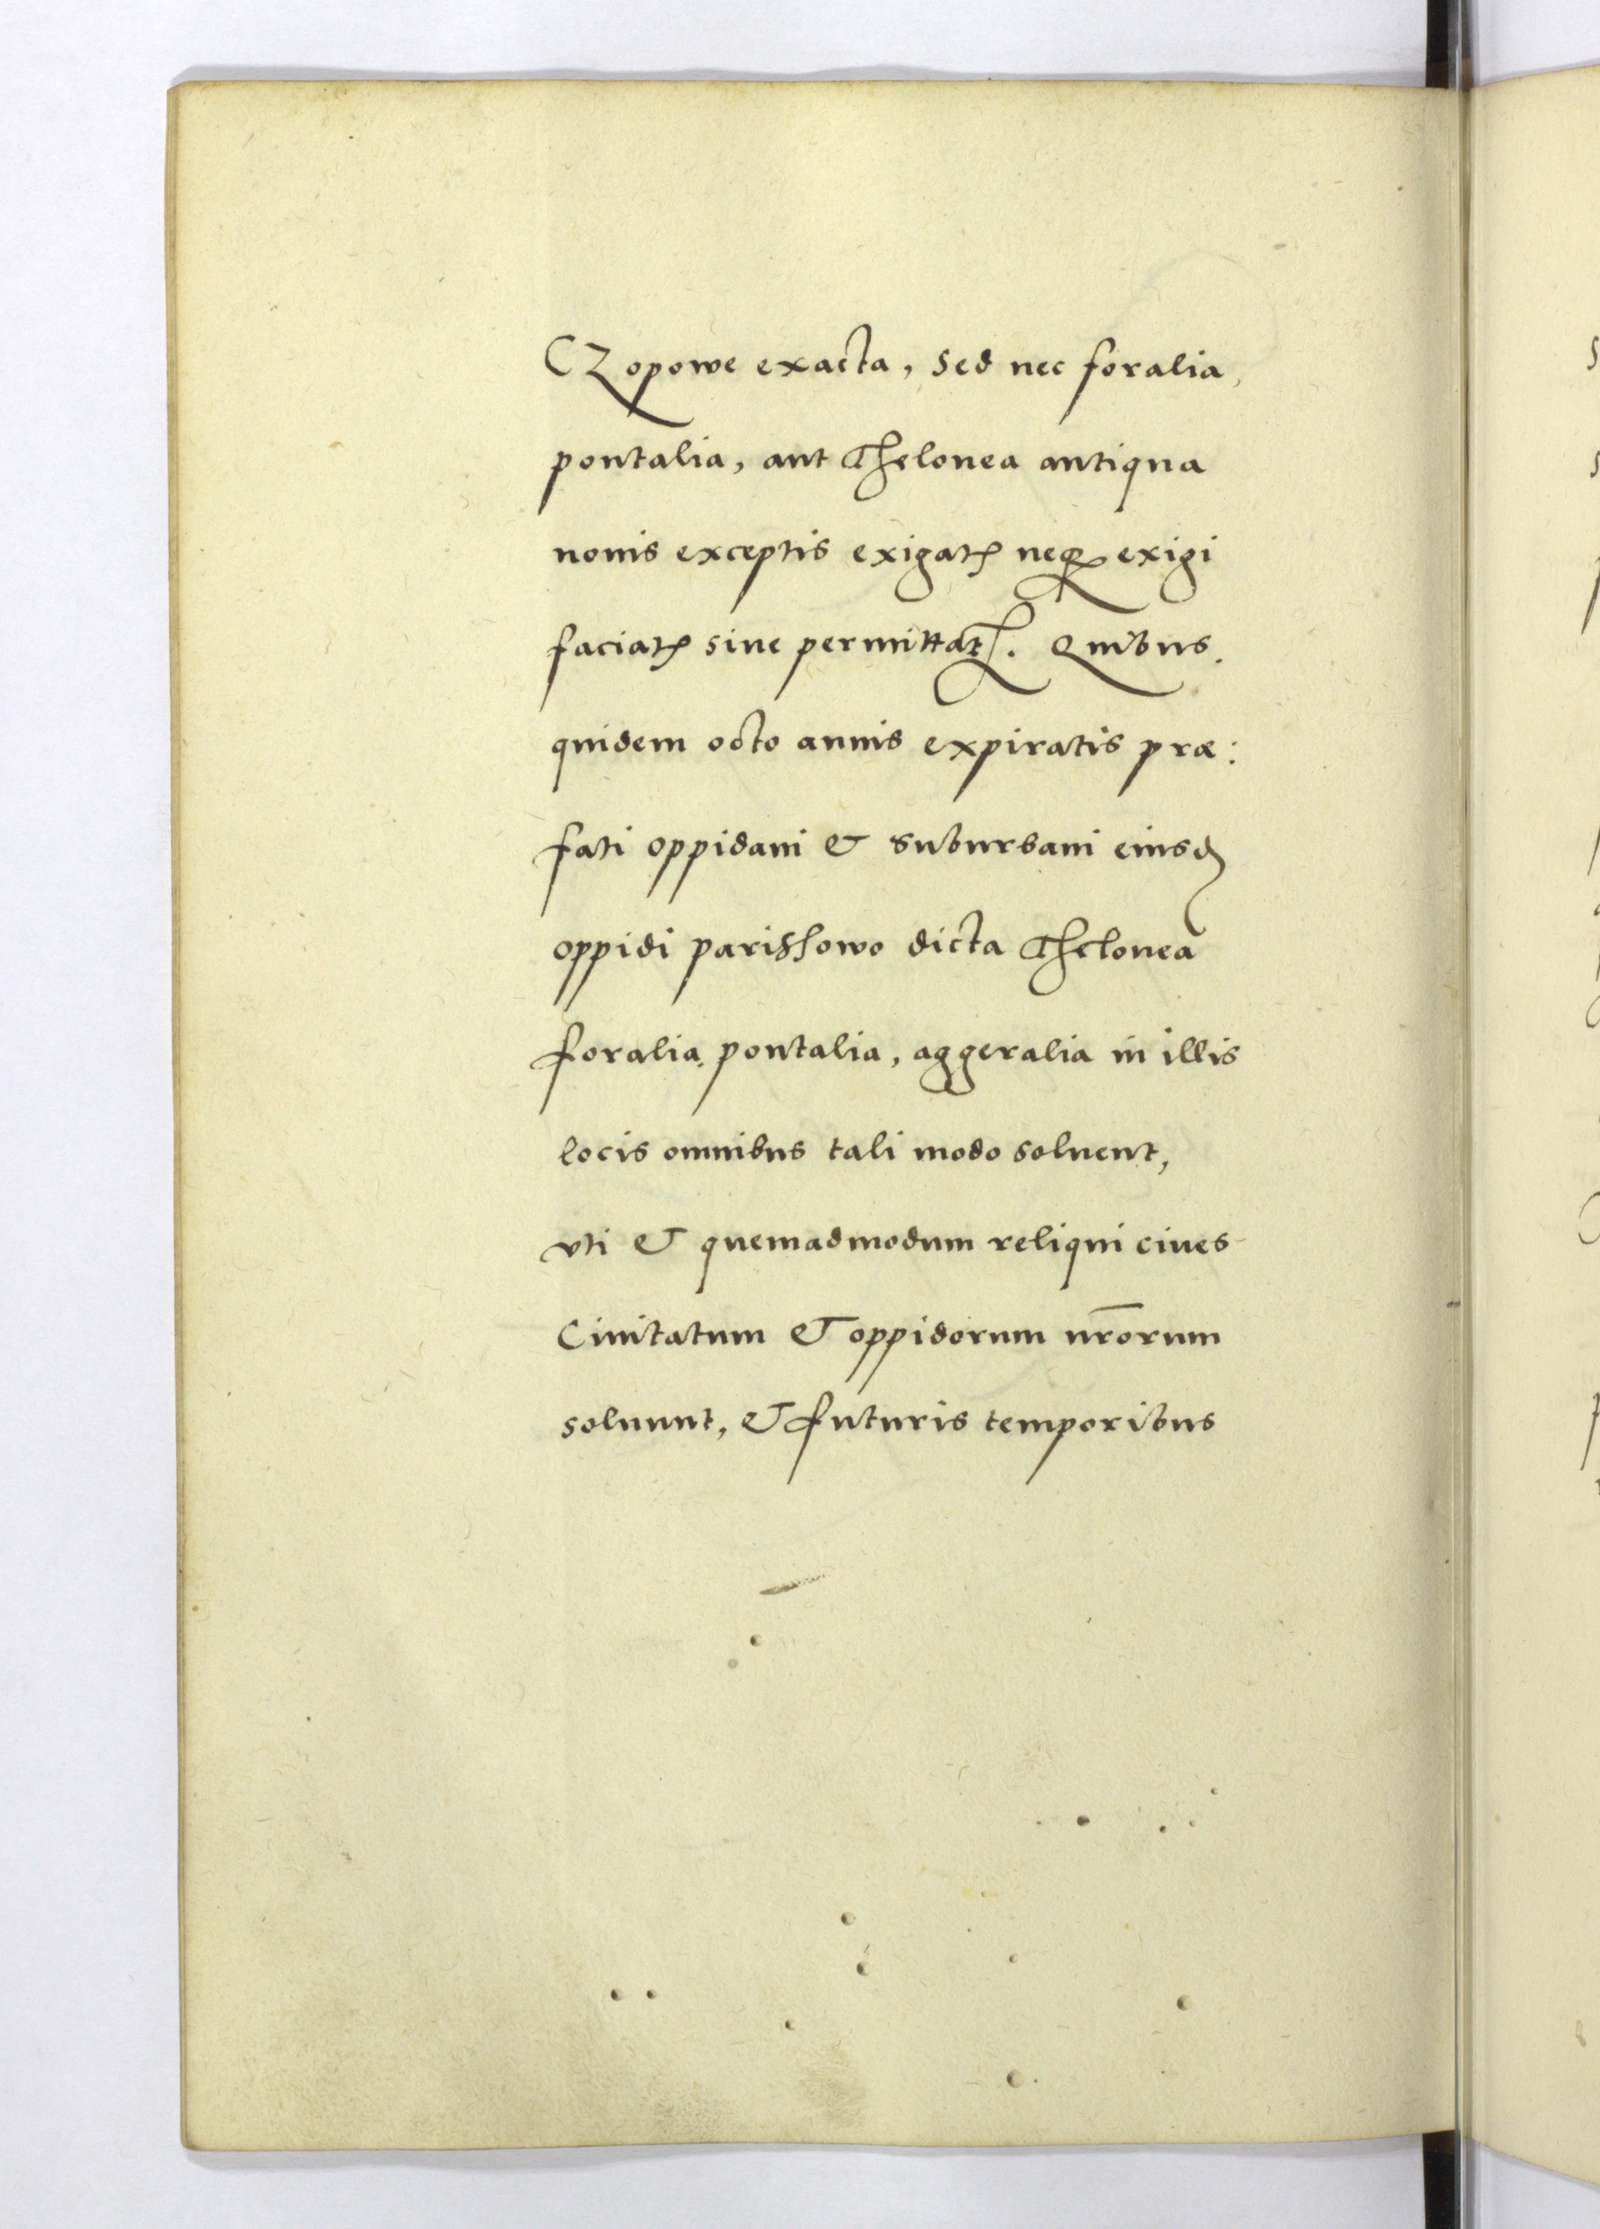 CZopowe exacta, sed nec foralia,
pontalia, aut Thelonea antiqua
nouis exceptis exigat⸗ neqꝫ exigi
faciat⸗ siue permittat⸗. Quibus.
quidem octo annis expiratis præ:
fati oppidani & suburbani eiusd
oppidi parisshowo dicta Thelonea
foralia, pontalia, aggeralia in illis
locis omnibus tali modo soluent,
vti & quemadmodum reliqui ciues
Ciuitatum & oppidorum nr̄orum
soluunt, & futuris temporibus